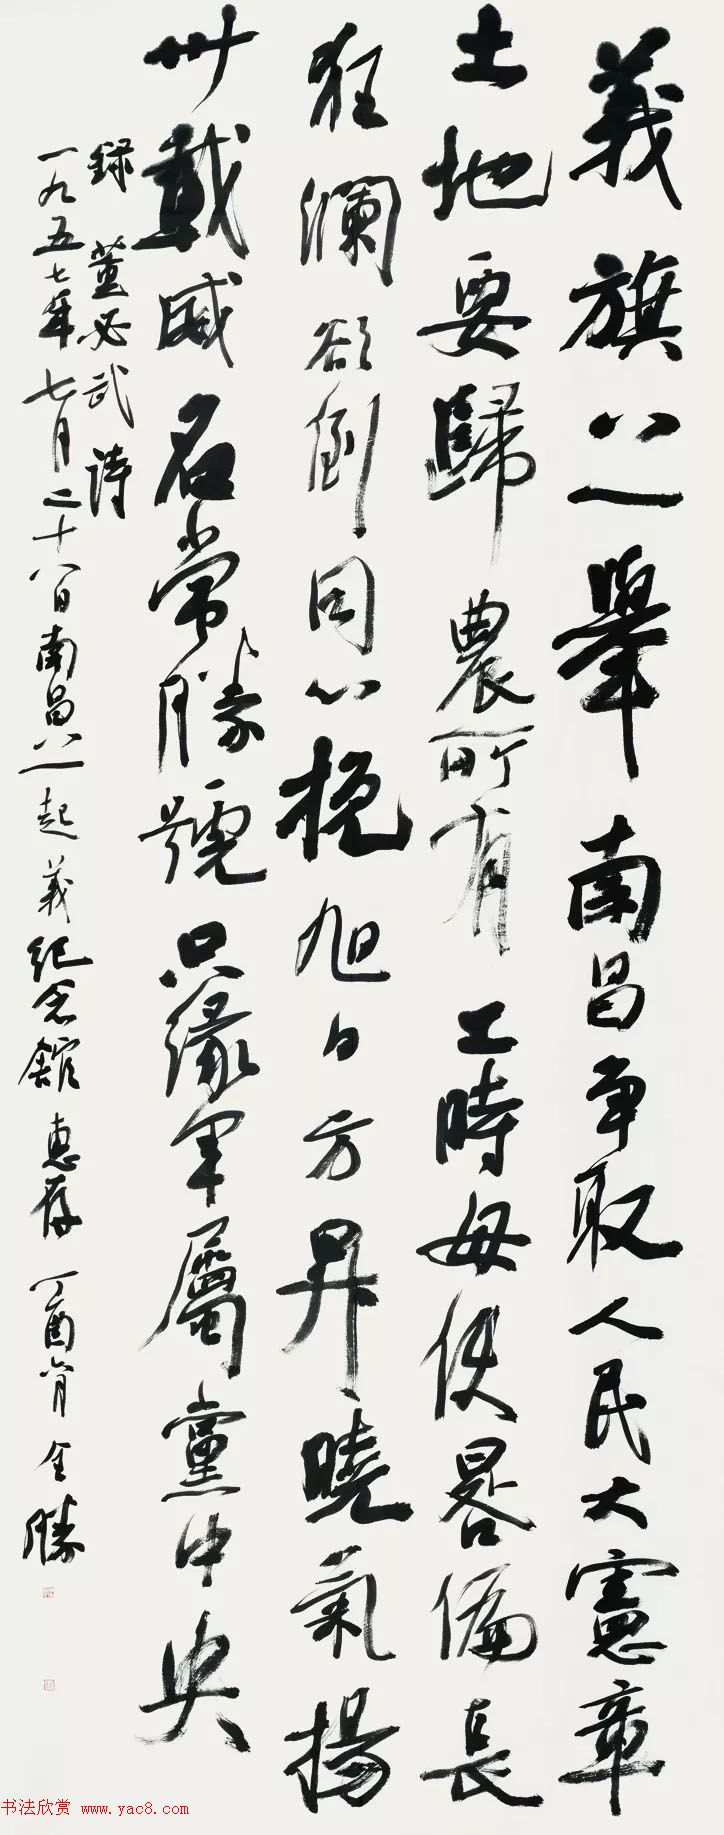 義旗八一舉南昌争取人民大憲章
土地要歸農所有工時毋使晷偏長
狂瀾欲倒同心挽旭日方昇曉氣揚
卅載威名常勝號只緣軍屬黨中央
録董必武詩
一九五七年七月二十八日南昌八一起義紀念館惠存丁酉宵全勝
书法欣赏 www.yac8.com